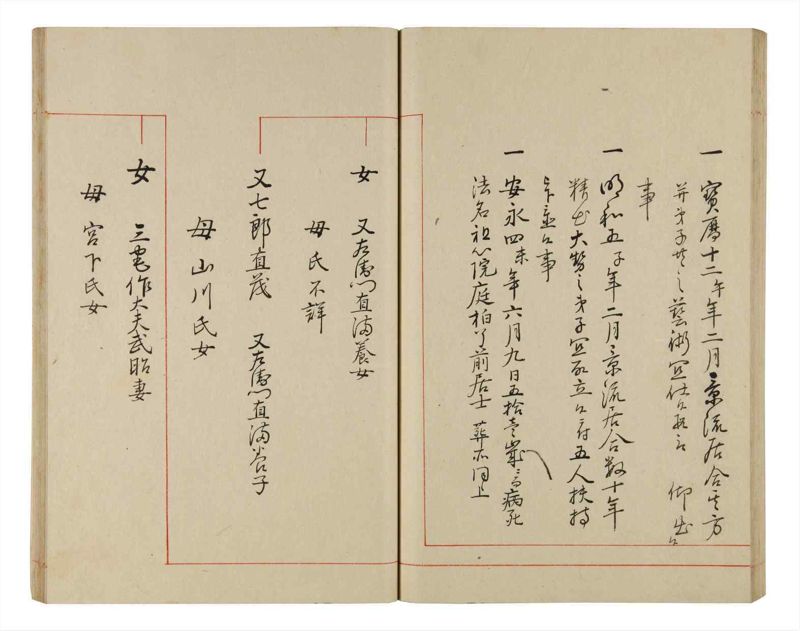 一 寶暦十二午年二月景流居合其方
并弟子共之藝術宜仕 御出
事
一 明和五子年二月景流居合数十年
精出大勢之弟子宜取立候付五人扶持
事
一 安永四未年六月九日五拾壱歳ニ而病死
法名祖心院庭柏了前居士 葬所同上
女 又左衛門直満養女
母氏不詳
又七郎直茂 又左衛門直満養子
母山川氏女
女 三宅作大夫武昭妻
母宮下氏女